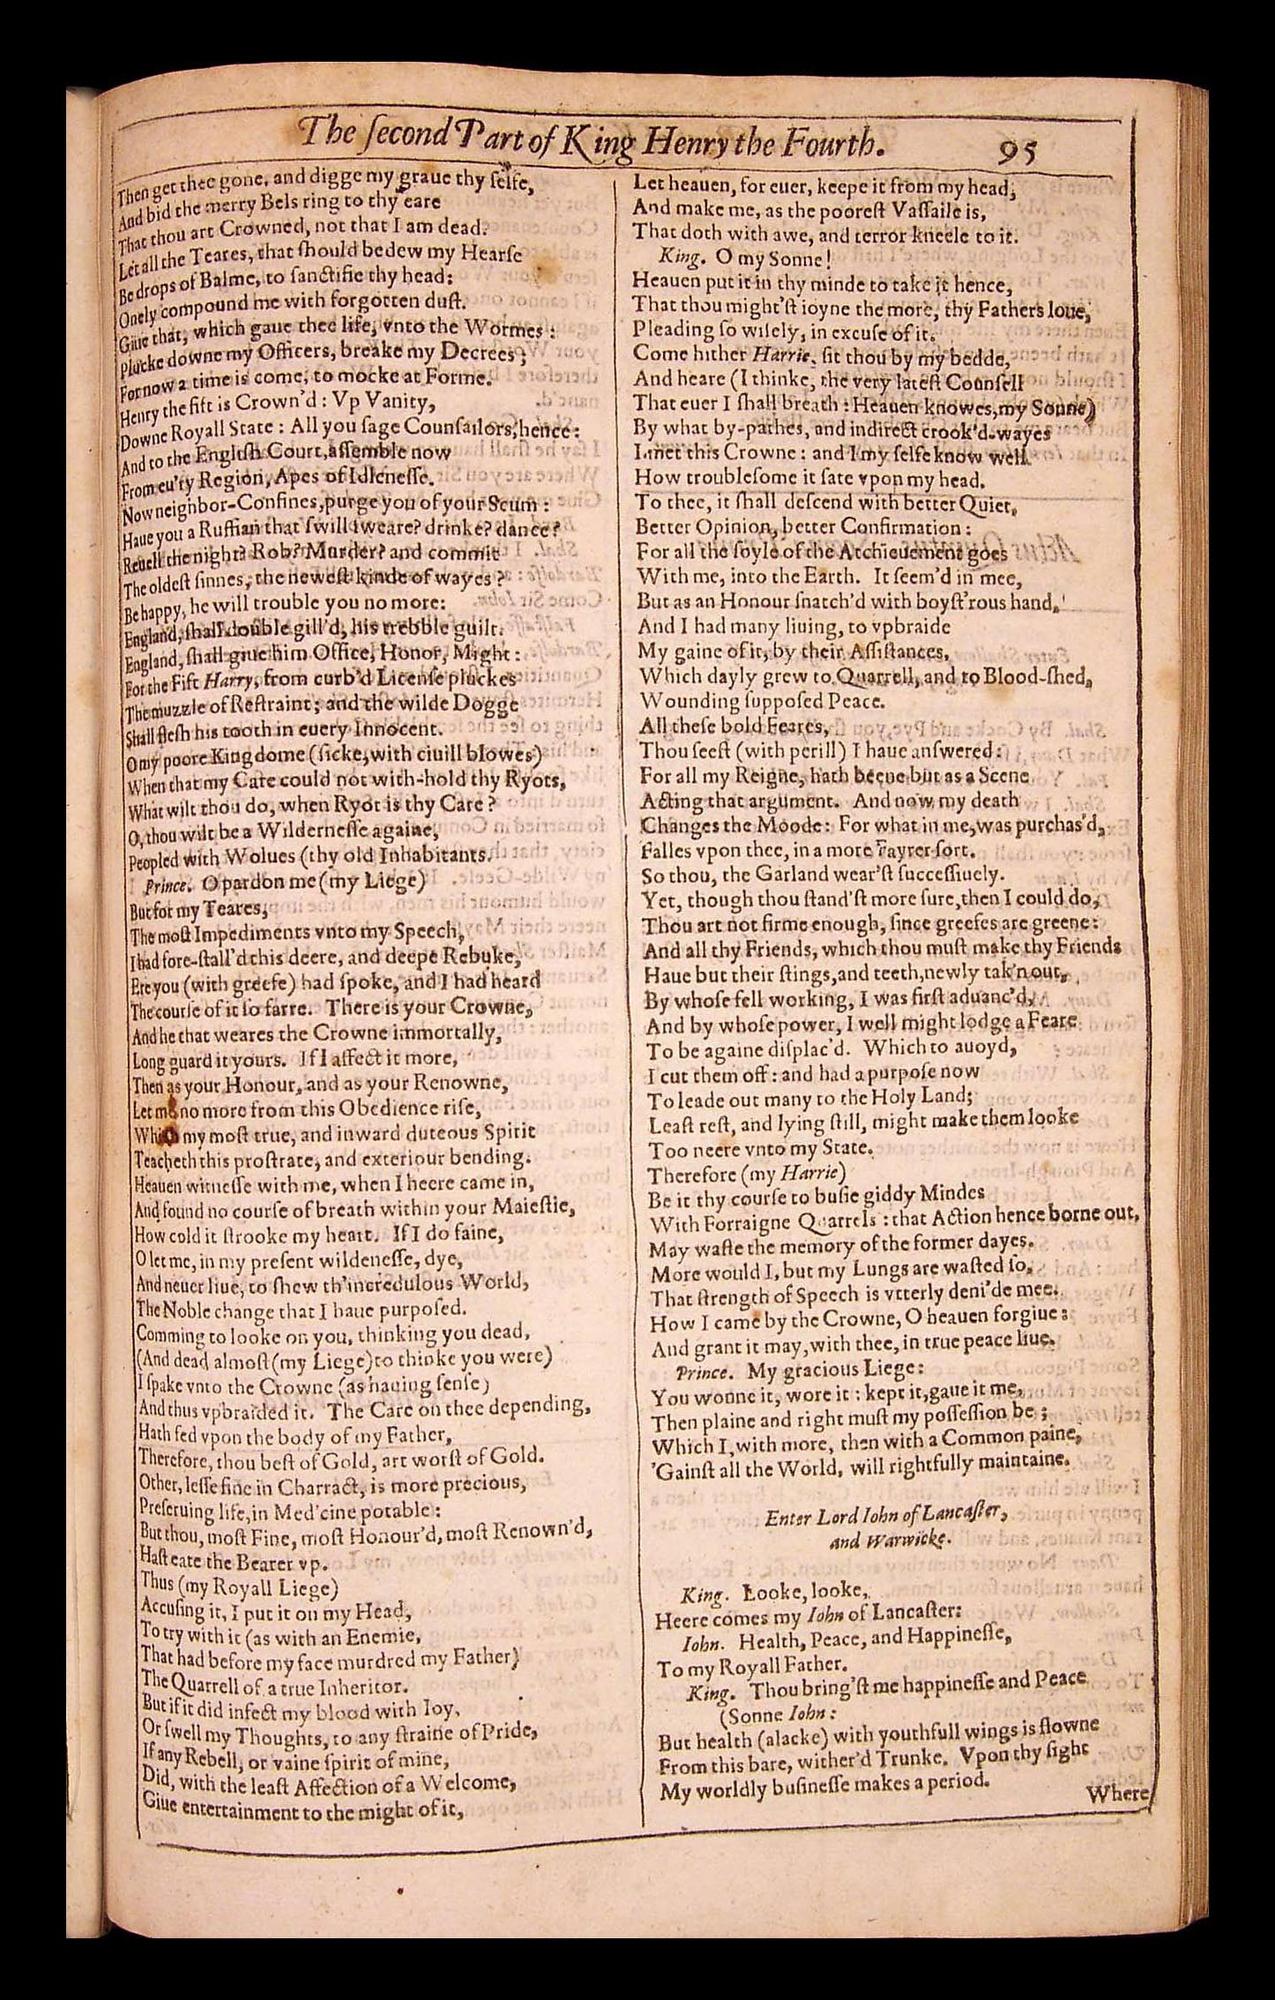 The ſecond Part of King Henry the Fourth.
95
Then get thee gone, and digge my graue thy ſelfe,
And bid the merry Bels ring to thy eare
That thou art Crowned, not that I am dead.
Let all the Teares, that ſhould bedew my Hearſe
Be drops of Balme, to ſanctifie thy head:
Onely compound me with forgotten duſt.
Giue that, which gaue thee life, vnto the Wormes:
Plucke downe my Officers, breake my Decrees;
For now a time is come, to mocke at Forme.
Henry the fift is Crown'd: Vp Vanity,
Downe Royall State: All you ſage Counſailors, hence:
And to the Engliſh Court, aſſemble now
From eu'ry Region, Apes of Idleneſſe.
Now neighbor-Confines, purge you of your Scum:
Haue you a Ruffian that ſwill ſweare? drinke? dance?
Reuell the night? Rob? Murder? and commit
The oldeſt ſinnes, the neweſt kinde of wayes?
Be happy, he will trouble you no more:
England, ſhall double gill'd, his trebble guilt.
England, ſhall giue him Office, Honor, Might:
For the Fift Harry, from curb'd Licenſe pluckes
The muzzle of Reſtraint; and the wilde Dogge
Shall fleſh his tooth in euery Innocent.
O my poore Kingdome (ſicke, with ciuill blowes)
When that my Care could not with-hold thy Ryots,
What wilt thou do, when Ryot is thy Care?
O, thou wilt be a Wilderneſſe againe,
Peopled with Wolues (thy old Inhabitants.
Prince. O pardon me (my Liege)
But for my Teares,
The moſt Impediments vnto my Speech,
I had fore-ſtall'd this deere, and deepe Rebuke,
Ere you (with greefe) had ſpoke, and I had heard
The courſe of it ſo farre. There is your Crowne,
And he that weares the Crowne immortally,
Long guard it yours. If I affect it more,
Then as your Honour, and as your Renowne,
Let me no more from this Obedience riſe,
Which my moſt true, and inward duteous Spirit
Teacheth this proſtrate, and exteriour bending.
Heauen witneſſe with me, when I heere came in,
And found no courſe of breath within your Maieſtie,
How cold it ſtrooke my heart. If I do faine,
O let me, in my preſent wildeneſſe, dye,
And neuer liue, to ſhew th'incredulous World,
The Noble change that I haue purpoſed.
Comming to looke on you, thinking you dead,
(And dead almoſt (my Liege) to thinke you were)
I ſpake vnto the Crowne (as hauing ſenſe)
And thus vpbraided it. The Care on thee depending,
Hath fed vpon the body of my Father,
Therefore, thou beſt of Gold, art worſt of Gold.
Other, leſſe fine in Charract, is more precious,
Preſeruing life, in Med'cine potable:
But thou, moſt Fine, moſt Honour'd, moſt Renown'd,
Haſt eate the Bearer vp.
Thus (my Royall Liege)
Accuſing it, I put it on my Head,
To try with it (as with an Enemie,
That had before my face murdred my Father)
The Quarrell of a true Inheritor.
But if it did infect my blood with Ioy,
Or ſwell my Thoughts, to any ſtraine of Pride,
If any Rebell, or vaine ſpirit of mine,
Did, with the leaſt Affection of a Welcome,
Giue entertainment to the might of it,
Let heauen, for euer, keepe it from my head,
And make me, as the pooreſt Vaſſaile is,
That doth with awe, and terror kneele to it.
King. O my Sonne!
Heauen put it in thy minde to take it hence,
That thou might'ſt ioyne the more, thy Fathers loue,
Pleading ſo wiſely, in excuſe of it.
Come hither Harrie, ſit thou by my bedde,
And heare (I thinke, the very lateſt Counſell
That euer I ſhall breath: Heauen knowes, my Sonne)
By what by-pathes, and indirect crook'd-wayes
I met this Crowne: and I my ſelfe know well
How troubleſome it ſate vpon my head.
To thee, it ſhall deſcend with better Quiet,
Better Opinion, better Confirmation:
For all the ſoyle of the Atchieuement goes
With me, into the Earth. It ſeem'd in mee,
But as an Honour ſnatch'd with boyſt'rous hand,
And I had many liuing, to vpbraide
My gaine of it, by their Aſſiſtances,
Which dayly grew to Quarrell, and to Blood-ſhed,
Wounding ſuppoſed Peace.
All theſe bold Feares,
Thou ſeeſt (with perill) I haue anſwered:
For all my Reigne, hath beene but as a Scene
Acting that argument. And now my death
Changes the Moode: For what in me, was purchas'd,
Falles vpon thee, in a more Fayrer ſort.
So thou, the Garland wear'ſt ſucceſſiuely.
Yet, though thou ſtand'ſt more ſure, then I could do,
Thou art not firme enough, ſince greefes are greene:
And all thy Friends, which thou muſt make thy Friends
Haue but their ſtings, and teeth, newly tak'n out,
By whoſe fell working, I was firſt aduanc'd,
And by whoſe power, I well might lodge a Feare
To be againe diſplac'd. Which to auoyd,
I cut them off: and had a purpoſe now
To leade out many to the Holy Land;
Leaſt reſt, and lying ſtill, might make them looke
Too neere vnto my State.
Therefore (my Harrie)
Be it thy courſe to buſie giddy Mindes
With Forraigne Quarrels: that Action hence borne out,
May waſte the memory of the former dayes.
More would I, but my Lungs are waſted ſo,
That ſtrength of Speech is vtterly deni'de mee.
How I came by the Crowne, O heauen forgiue:
And grant it may, with thee, in true peace liue.
Prince. My gracious Liege:
You wonne it, wore it: kept it, gaue it me,
Then plaine and right muſt my poſſeſſion be;
Which I, with more, then with a Common paine,
'Gainſt all the World, will rightfully maintaine.
Enter Lord Iohn of Lancaſter,
and Warwicke.
King. Looke, looke,
Heere comes my Iohn of Lancaſter:
Iohn. Health, Peace, and Happineſſe,
To my Royall Father.
King. Thou bring'ſt me happineſſe and Peace
(Sonne Iohn:
But health (alacke) with youthfull wings is flowne
From this bare, wither'd Trunke. Vpon thy ſight
My worldly buſineſſe makes a period.
Where